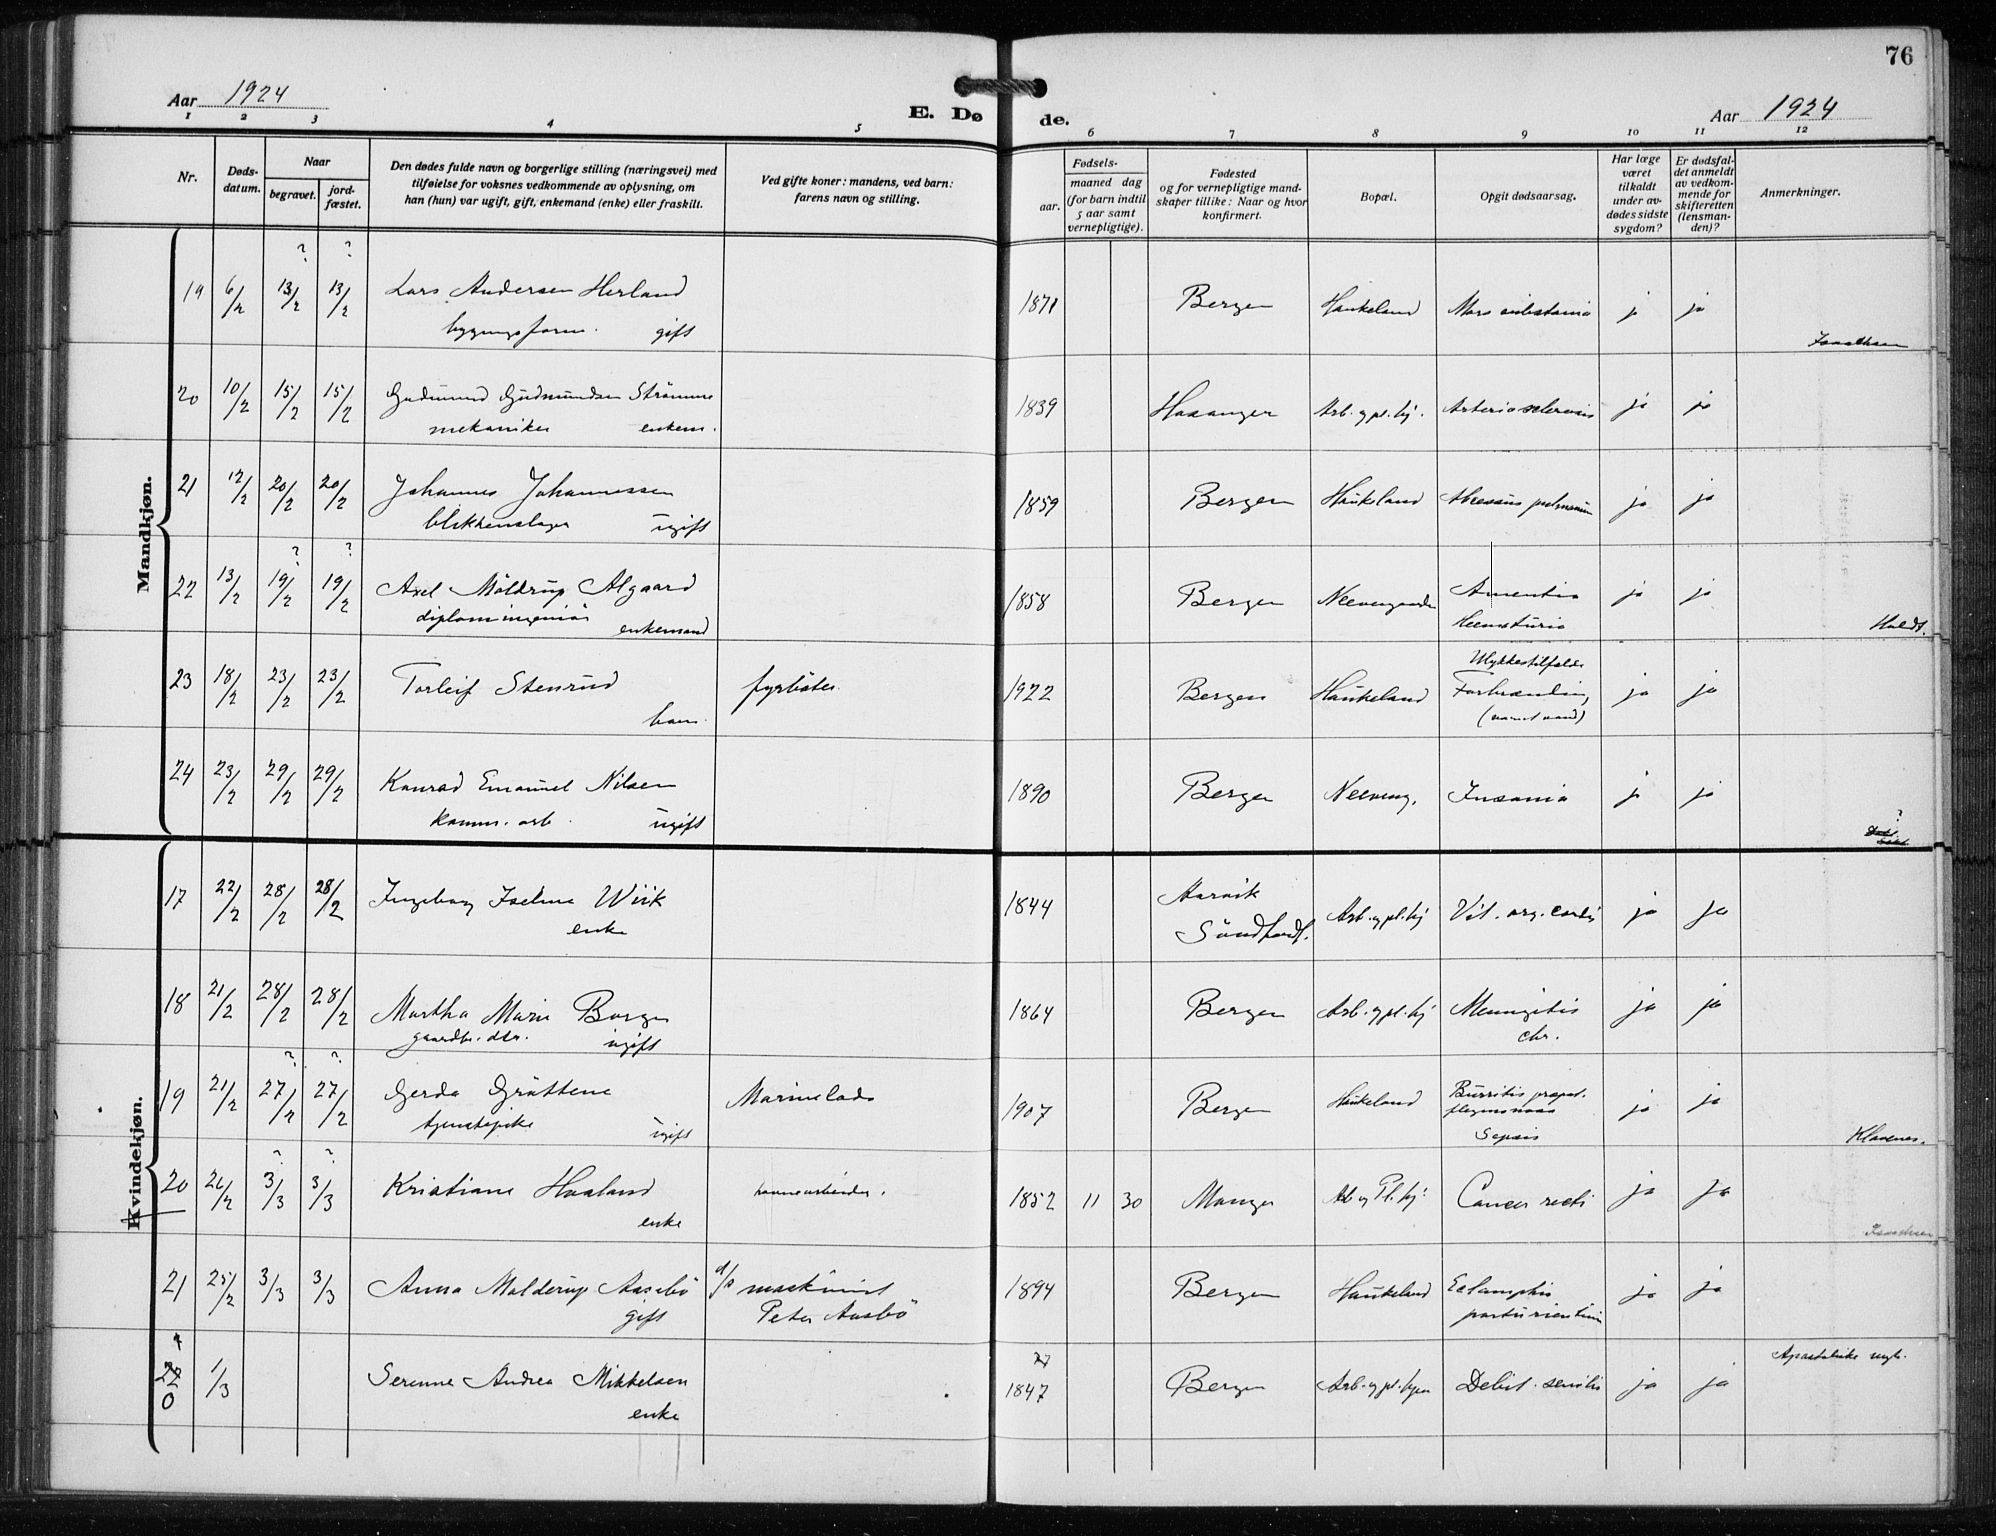 76
Aar 1924
E. Dø
de.
Aar 1924
1 2 3 4 5 6 7 8 9 10 11 12
Nr.
Døds-
datum.
Naar
begravet.
jord-
fæstet.
Den dødes fulde navn og borgerlige stilling (næringsvei) med
tilføielse for voksnes vedkommende av oplysning, om
han (hun) var ugift, gift, enkemand (enke) eller fraskilt.
Ved gifte koner: mandens, ved barn:
farens navn og stilling.
Fødsels-
aar.
maaned dag
(for barn indtil
5 aar samt
vernepligtige).
Fødested
og for vernepligtige mand-
skaper tillike: Naar og hvor
konfirmert.
Bopæl.
Opgit dødsaarsag.
Har læge
været
tilkaldt
under av-
dødes sidste
sygdom?
Er dødsfal-
det anmeldt
av vedkom-
mende for
skifteretten
(lensman-
den)?
Anmerkninger.
Mandkjøn.
? ?
19 6/2 13/2 13/2 Lars Andersen Herland 1871 Bergen Haukeland ja ja
gift
Isaachsen
20 10/2 15/2 15/2 Gudmund Gudmundsen Strömme 1839 Arb. og pl. hj. Arteriosclerosis ja ja
mekaniker enkem.
21 12/2 20/2 20/2 Johannes Johannessen 1859 Bergen Haukeland ja ja
blikkenslager ugift
? ?
22 13/2 19/2 19/2 Axel Möldrup Algaard 1858 Bergen Neevengaarden Amentia ja ja
diplomingeniör enkemand Heematuria
Holdt.
Ulykkestilfælde
23 18/2 23/2 23/2 Torleif Stenrud fyrböter 1922 Bergen Haukeland Forbrænding ja ja
barn (varmt vand)
24 23/2 29/2 29/2 Konrad Emanuel Nilsen 1890 Bergen Neeveng. Insania ja ja
komm. arb. ugift
?
Kvindekjøn.
17 22/2 28/2 28/2 Ingeborg Wiik 1844 Arb. og pl. hj Vit. org. cordis ja ja
enke
18 21/2 28/2 28/2 Martha Marie Borge 1864 Bergen Arb. og pl. hj Meningitis ja ja
gaardbr. dtr. ugift chr.
? ?
19 21/2 27/2 27/2 Gerda Gröttene 1907 Bergen Haukeland ja ja
ugift Sepsis
Klavenes.
? ?
20 26/2 3/3 3/3 Kristiane Haaland havnearbeider. 1852 11 30 Manger Arb og Pl. hj. Cancer recti ja ja
enke
Isaachsen
21 25/2 3/3 3/3 Anna Molderup Aasebö maskinist 1894 Bergen Haukeland Eclampsia ja ja
gift Peter Aasbö parturientium
22 0 1/3 Serenne Andrea Mikkelsen 1847 Bergen Debil. senilis ja ja
enke